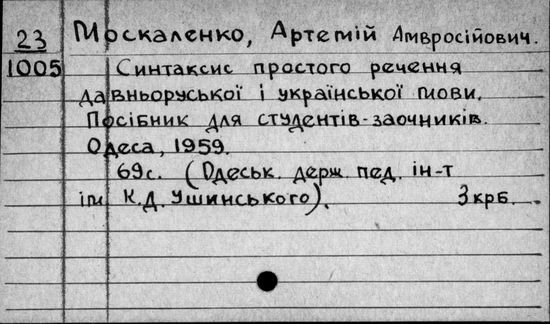 23 Москаленко, Артемій Амвросійович.
1005 Синтаксис простого речення
давньоруської і української мови.
Посібник для студентів-заочників.
Одеса, 1959.
69с. (Одеськ. держ. пед. ін-т
ім К.Д. Ушинського). 3 крб.